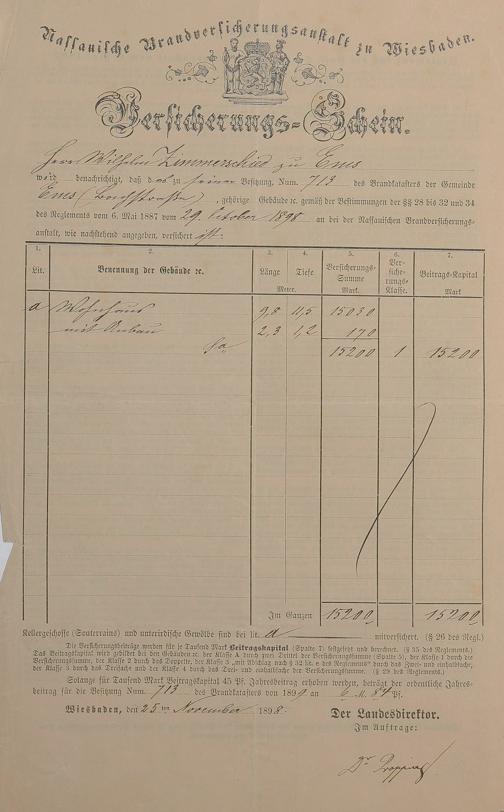 Nassauische Brandversicherungsanstalt zu Wiesbaden.
Versicherungs-Schein.
Herr Wilhelm Zimmerschied zu Ems
wird benachrichtigt, daß das zu seiner Besitzung, Num. 713 des Brandkatasters der Gemeinde
Ems ( ), gehörige Gebäude ꝛc. gemäß der Bestimmungen der §§ 28 bis 32 und 34
des Reglements vom 6. Mai 1887 vom 29. October 1898 an bei der Nassauischen Brandversicherungs-
anstalt, wie nachstehend angegeben, versichert ist.
1. 2. 3. 4. 5. 6. 7.
Lit. Benennung der Gebäude ꝛc. Länge Tiefe Versicherungs-Summe Versicherungs-Klasse. Beitrags-Kapital
Meter. Mark. Mark
a Wohnhaus 9,8 11,5 15030
mit Anbau 2,3 1,2 170
Sa 15200 1 15200
Im Ganzen 15200 15200
Kellergeschosse (Souterrains) und unterirdische Gewölbe sind bei lit. a mitversichert. (§ 26 des Regl.)
Die Versicherungsbeiträge werden für je Tausend Mark Beitragskapital (Spalte 7) festgesetzt und berechnet. (§ 35 des Reglements.)
Das Beitragskapital wird gebildet bei den Gebäuden ꝛc. der Klasse A durch zwei Drittel der Versicherungssumme (Spalte 5), der Klasse 1 durch die
Versicherungssumme, der Klasse 2 durch das Doppelte, der Klasse 3 „mit Abschlag nach § 32 lit. c des Reglements" durch das Zwei- und einhalbfache,
der Klasse 3 durch das Dreifache und der Klasse 4 durch das Drei- und einhalbfache der Versicherungssumme. (§ 29 des Reglements.)
Solange für Tausend Mark Beitragskapital 45 Pf. Jahresbeitrag erhoben werden, beträgt der ordentliche Jahres-
beitrag für die Besitzung Num. 713 des Brandkatasters von 1899 an 6 M. 84 Pf.
Wiesbaden, den 25ten November 1898.
Der Landesdirektor.
Im Auftrage:
Dr